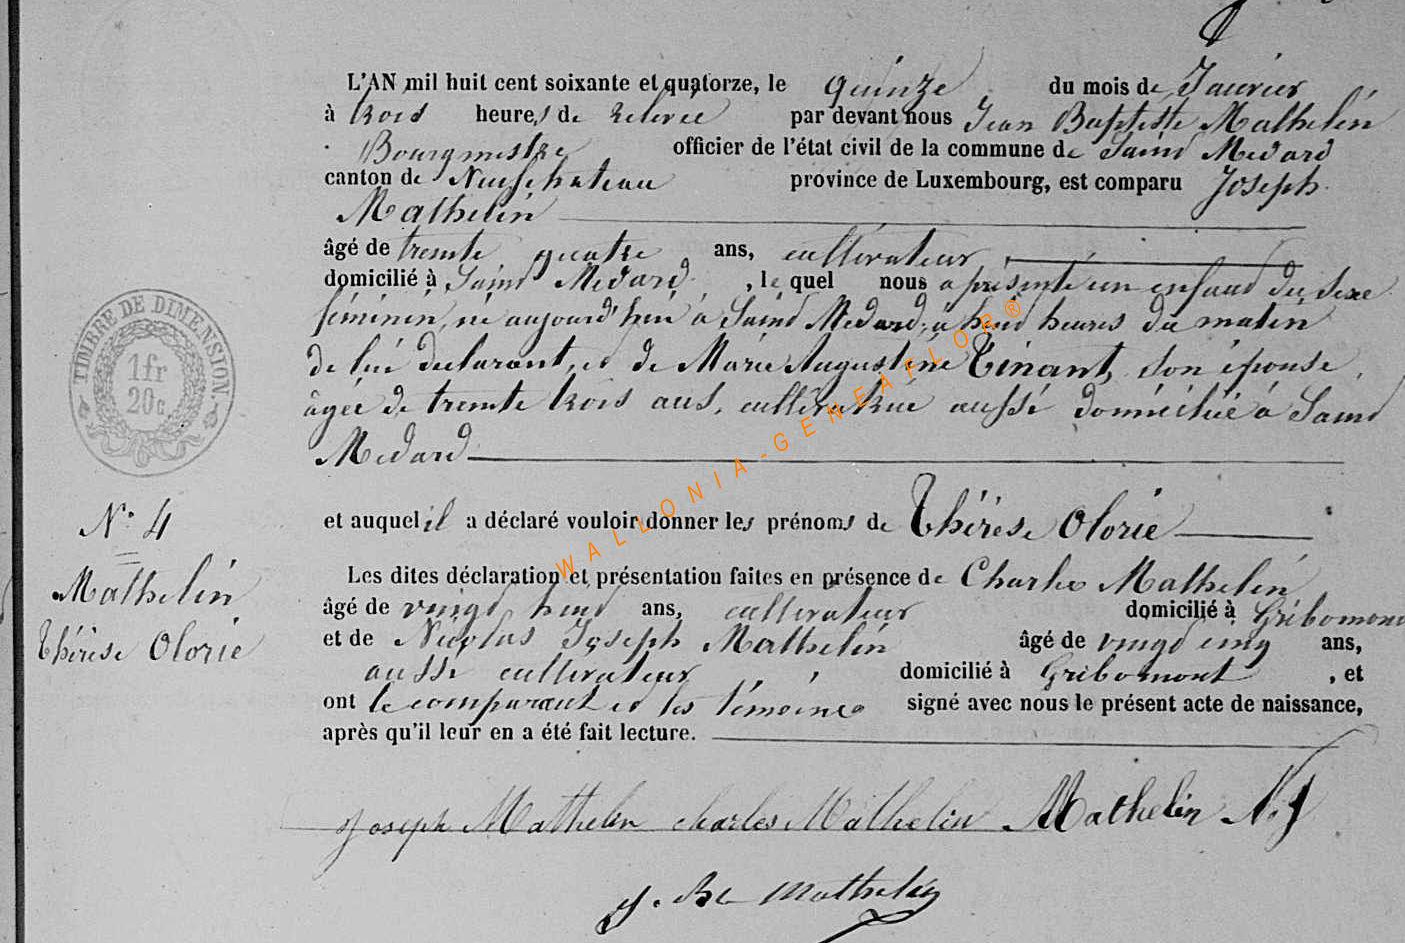 L'AN mil huit cent soixante et quatorze, le quinze du mois de Janvier
à trois heures de relevée par devant nous Jean Baptiste Mathelin
Bourgmestre officier de l'état civil de la commune de Saint Medard
canton de Neufchateau province de Luxembourg, est comparu Joseph
Mathelin
âgé de trente quatre ans, cultivateur,
domicilié à Saint Medard, le quel nous a présenté un enfant du sexe
féminin, né aujourd'hui à Saint Medard, à huit heures du matin
de lui declarant, et de Marie Augustine Tinant, son épouse,
âgée de trente trois ans, cultivatrice aussi domiciliée à Saint
Medard
TIMBRE DE DIMENSION.
1fr
20c
et auquel il a déclaré vouloir donner les prénoms de Thérèse Olorie
N° 4
Mathelin
Thérèse Olorie
Les dites déclaration et présentation faites en présence de Charles Mathelin
âgé de vingt huit ans, cultivateur domicilié à Gribomont
et de Nicolas Joseph Mathelin âgé de vingt cinq ans,
aussi cultivateur domicilié à Gribomont, et
ont le comparant et les témoins signé avec nous le présent acte de naissance,
après qu'il leur en a été fait lecture.
Joseph Mathelin charles Mathelin Mathelin N. J
J. Bte Mathelin
WALLONIA-GENEAFLOR®